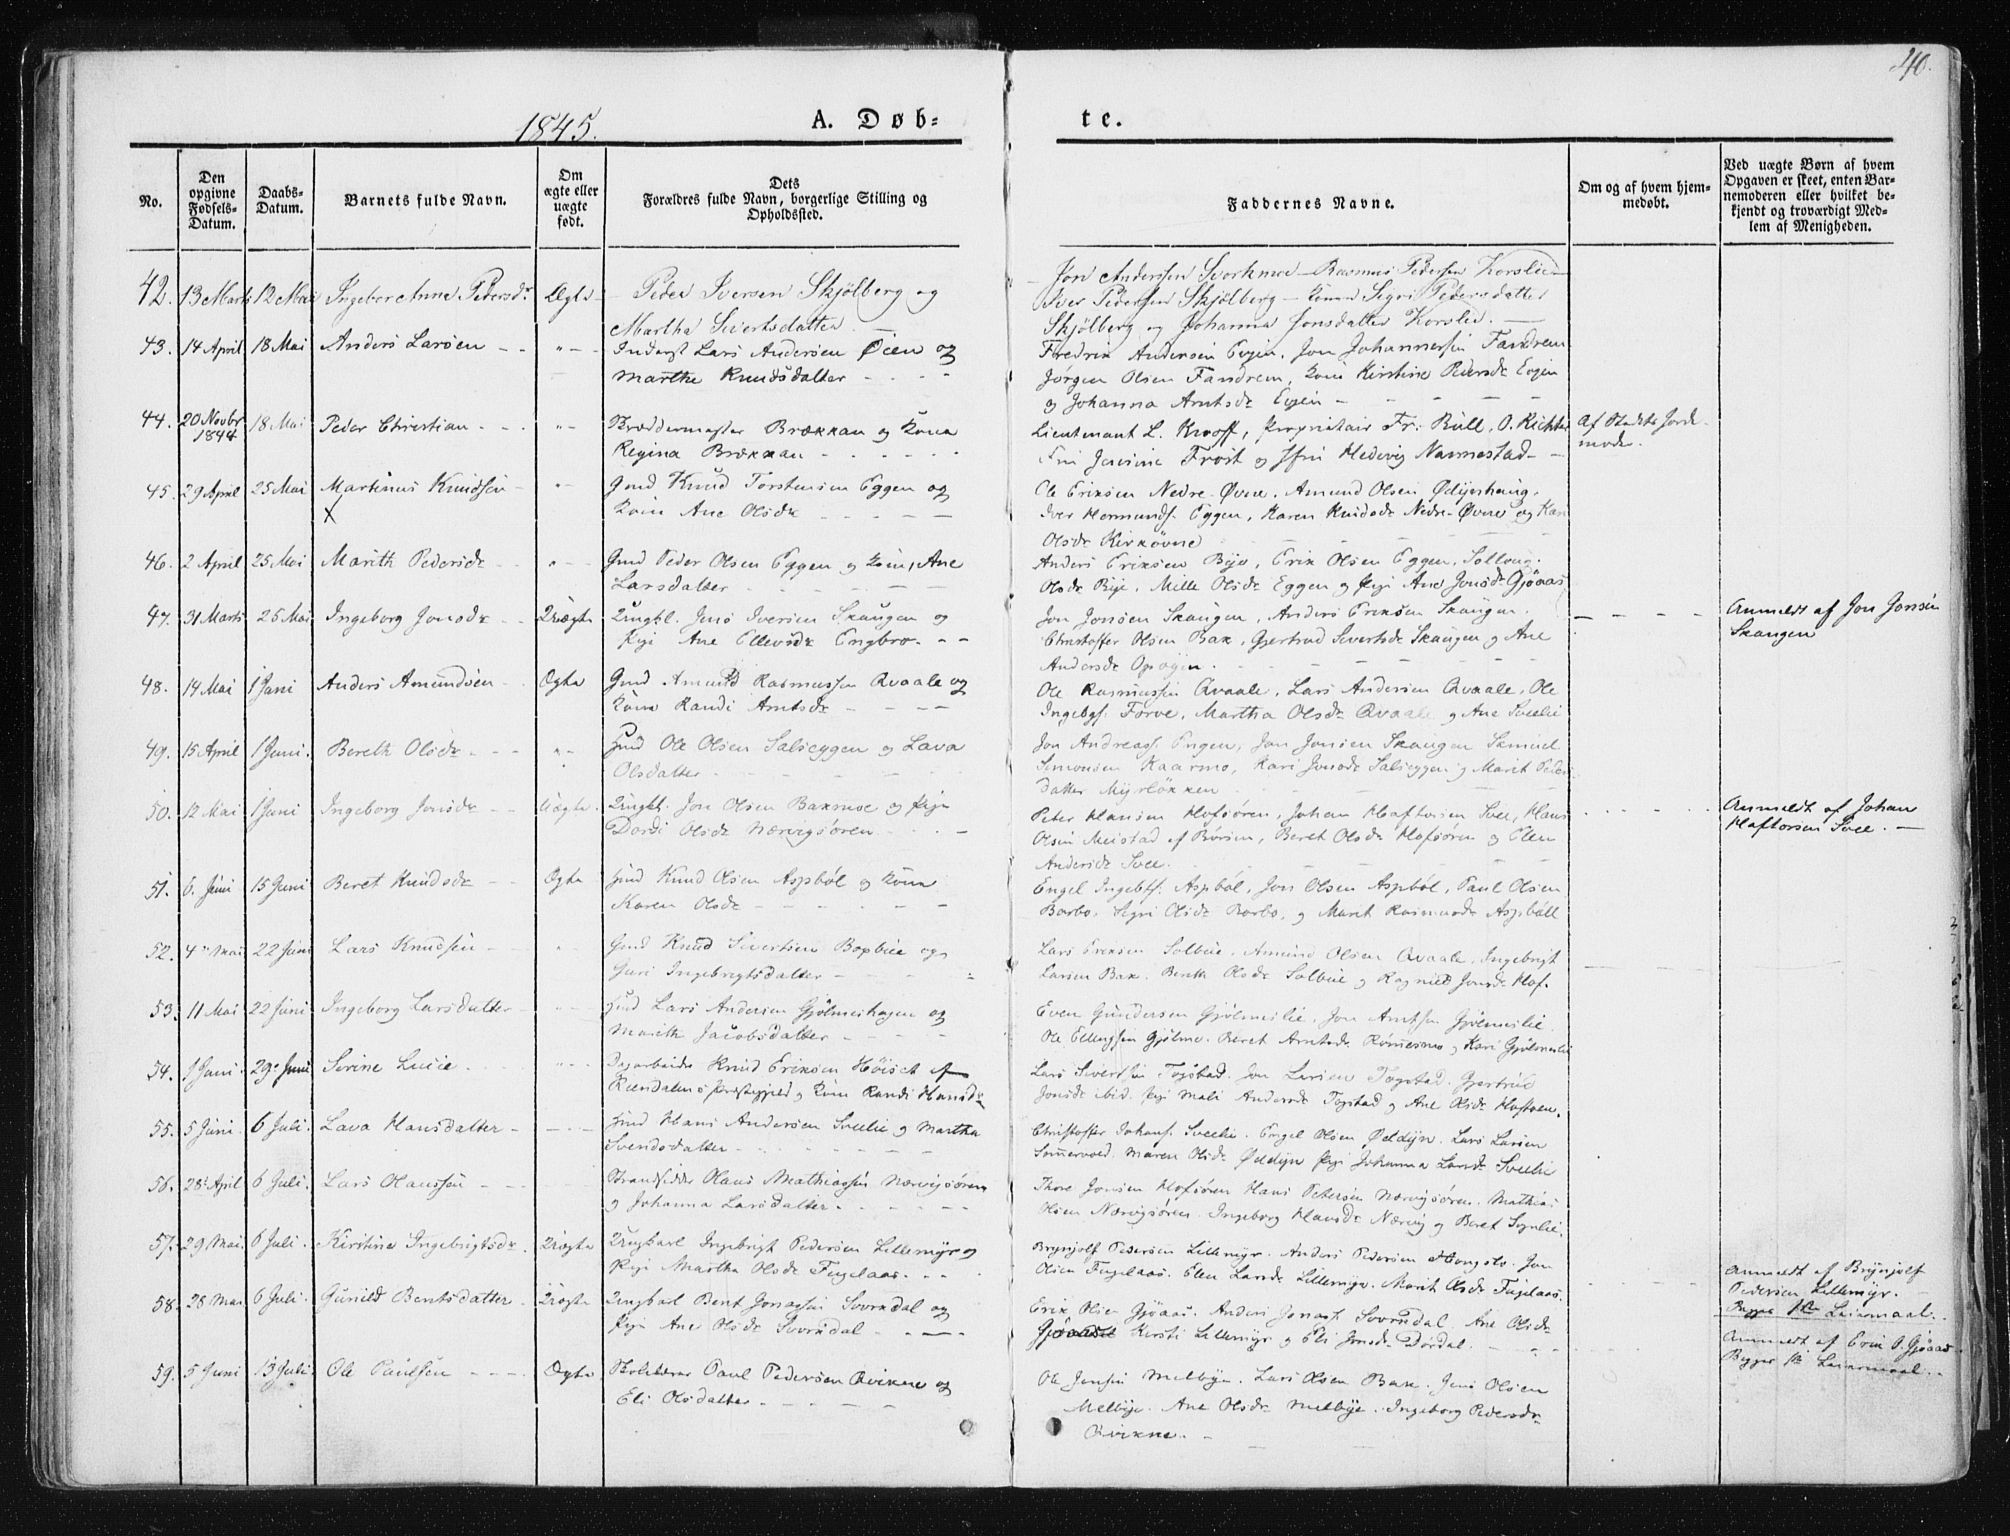 40.
1845.
A. Døb-
te.
No.
Den opgivne Fødsels-Datum.
Daabs-Datum.
Barnets fulde Navn.
Om ægte eller uægte født.
Dets Forældres fulde Navn, borgerlige Stilling og Opholdssted.
Faddernes Navne.
Om og af hvem hjemmedøbt.
Ved uægte Børn af hvem Opgaven er skeet, enten Barnemoderen eller hvilket bekjendt og troværdigt Medlem af Menigheden.
42. 13 Marts 12 Mai Ingebor Anne Pedersdr. Ægte Peder Iversen Skjølberg og
Martha Sivertsdatter
Jon Anderssen Svorkmoe - Rasmus Pedersen Korslie
Iver Pedersen Skjølberg - Kone Sigri Pedersdatter
Skjølberg og Johanna Jonsdatter Korslie.
43. 14 April 18 Mai Anders Larsen " Lars Andersen Øien og
Marthe Knudsdatter
Fredrik Andersen Evjen, Jon Johannessen Fandrem
Jørgen Olsen Fandrem, Kone Kirstine Pedersdr Evjen
og Johanna Arntsdr Evjen
44. 20 Novbr 1844 18 Mai Peder Christian " Brækkan og Kone
Regina Brækkan
Lieutenant L. Knoff, Proprietair Fr. Bull, O. Richter
Frost og Hedevig Nannestad
Af Stedets Jorde-
moder.
45. 29 April 25 Mai Martinus Knudsen " Gmd Knud Torstensen Eggen og
X
Kone Ane Olsdr
Ole Eriksen Nedre-Øvne, Amund Olsen
Iver Hermunds. Eggen, Karen Knudsdr Nedre-Øvne og Kari
Olsdr Kirkøvne
46. 2 April 25 Mai Marith Pedersdr " Gmd Peder Olsen Eggen og Kone, Ane
Larsdatter
Anders Eriksen Bye, Erik Olsen Eggen,
Olsdr Bye, Mille Olsdr Eggen og Pige Ane Jonsdr Gjøaas
47. 31 Marts 25 Mai Ingeborg Jensdr Uægte Ungkl. Jens Iversen Skaugen og
Pige Ane Ellevsdr Engbro
Jon Jonsen Skaugen, Anders Eriksen Skaugen.
Christoffer Olsen Bak, Gjertrud Sivertsdr Skaugen og Ane
Andersdr
Anmeldt af Jon Jonsen
Skaugen
48. 14 Mai 1 Juni Anders Amundsen Ægte Gmd Amund Rasmussen Qvaale og
Kone Randi Arntsdr
Ole Rasmussen Qvaale, Lars Andersen Qvaale, Ole
Ingebgs. Forve, Martha Olsdr Qvaale og Ane Sveelie
49. 15 April 1 Juni Bereth Olsdr " Hmd Ole Olsen Salseggen og Lava
Olsdatter
Jon Andreass. Engen, Jon Jonsen Skaugen Samuel
Simonsen Kaarmo, Kari Jonsdr Salseggen og Marit Peders-
datter Myrløkken
50. 12 Mai 1 Juni Ingeborg Jonsdr Uægte Ungkl. Jon Olsen Bakmoe og Pige
Dordi Olsdr Nærvigsøren
Peter Hansen Hofsøren, Johan Haftorsen Svee, Hans
Olsen Meistad af Børsen, Beret Olsdr Hofsøren og Elen
Andersdr Svee
Anmeldt af Johan
Haftorsen Svee.
51. 6. Juni 15 Juni Beret Knudsdr Ægte Hmd Knud Olsen Aspbøl og Kone
Karen Olsdr
Engel Ingebts. Aspbøl, Jon Olsen Aspbøl, Paul Olsen
Barbo, Sigri Olsdr Barbo, og Marit Rasmusdr Aspbøll
52. 4 Mai 22 Juni Lars Knudsen " Gmd Knud Sivertsen Bogbue og
Guri Ingebrigtsdatter
Lars Eriksen Solbue, Amund Olsen Qvaale, Ingebrigt
Larsen Bak, Berith Olsdr Solbue og Ragnild Jonsdr Hof.
53. 11 Mai 22 Juni Ingeborg Larsdatter " Hmd Lars Andersen Gjølmeshagen og
Marith Jacobsdatter
Even Gundersen Gjølmeslie, Jon Arntsen Gjølmeslie
Ole Ellingsen Gjølme, Beret Arntsdr Rømesmo og Kari Gjølmeslie
54. 1 Juni 29 Juni Serine Lucie " Dagarbeider Knud Eriksen Høisæt af
Præstegjeld og Kone Randi Hansdr
Lars Sivertsen Togstad. Jon Larsen Togstad. Gjertrud
Jonsdr ibid. Pige Mali Andersdr Togstad og Ane Olsdr
55. 5 Juni 6 Juli. Lava Hansdatter Hmd Hans Andersen Sveelie og Martha
Svendsdatter
Christoffer Johans. Sveelie. Engel Olsen Øddyn. Lars Larsen
Sommervold. Maren Olsdr Øddyn Pige Johanna Larsdr Sveelie
56. 28 April 6 Juli. Lars Olaussen Strandsidder Olaus Mathiassen Nærvigsøren
og Johanna Larsdatter
Thore Jonsen Hofsøren Hans Petersen Nærvigsøren. Mathias
Olsen Nærvigsøren. Ingeborg Hansdr Nærvig og Beret
57. 29 Mai 6 Juli. Kirstine Ingebrigtsdr. Uægte Ungkarl Ingebrigt Pedersen Lillemyr og
Pige Martha Olsdr Fuglaas
Brynjolf Pedersen Lillemyr. Anders Pedersen Jon
Olsen Fuglaas. Elen Larsdr Lillemyr. Marit Olsdr Fuglaas.
Anmeldt af Brynjolf
Pedersen Lillemyr.
Begges 1ste Leiermaal.
58. 28 Mai 6 Juli. Gunild Bentsdatter Uægte Ungkarl Bent Jonassen Svorndal og
Pige Ane Olsdr Svorndal
Erik Olsen Gjøaas. Anders Jonass. Svorndal. Ane Olsdr
Kersti Lillemyr og Eli Jonsdr Dørdal.
Anmeldt af Erik O. Gjøaas
Begges 1ste Leiermaal.
59. 5 Juni 13 Juli. Ole Paulsen Ægte Skoleholder Paul Pedersen Qvikne og
Eli Olsdatter
Ole Jensen Melbye. Lars Olsen Bak. Jens Olsen
Melbye. Ane Olsdr Melbye. Ingeborg Pedersdr
Qvikne.